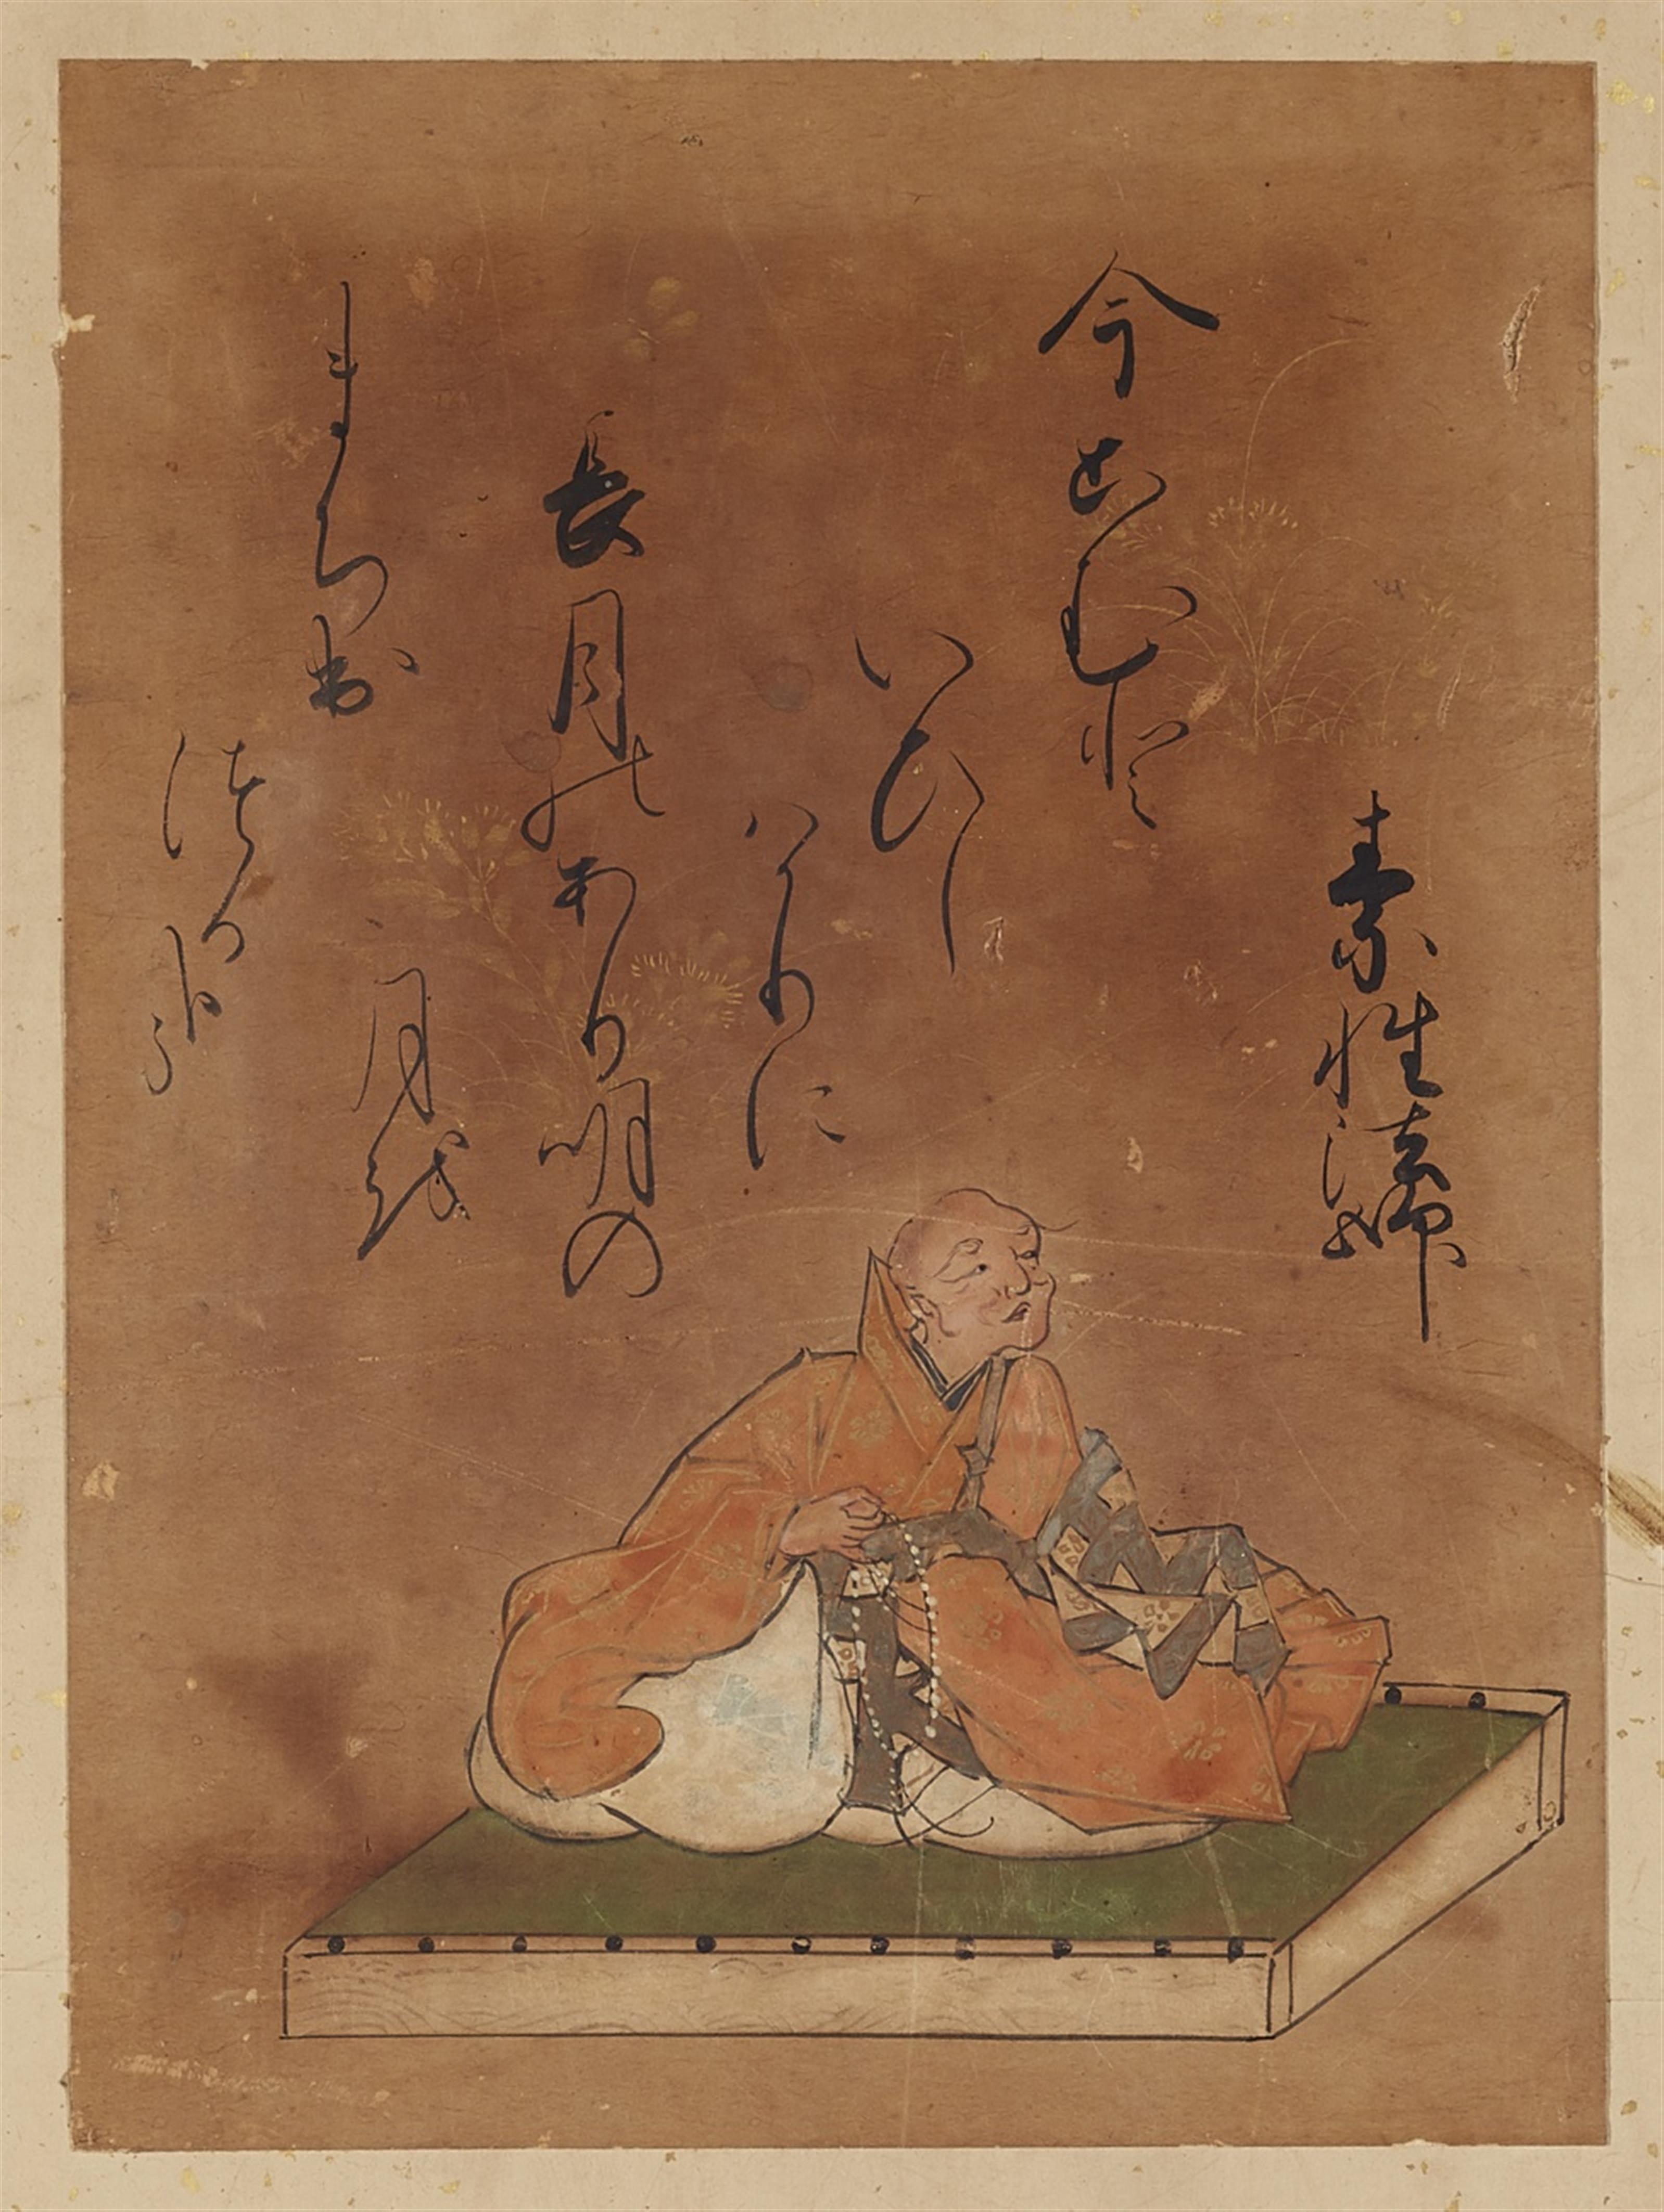 素性法師
今こむと
いひし
はかりに
長月のあり明の
月を
まち出
つるかな